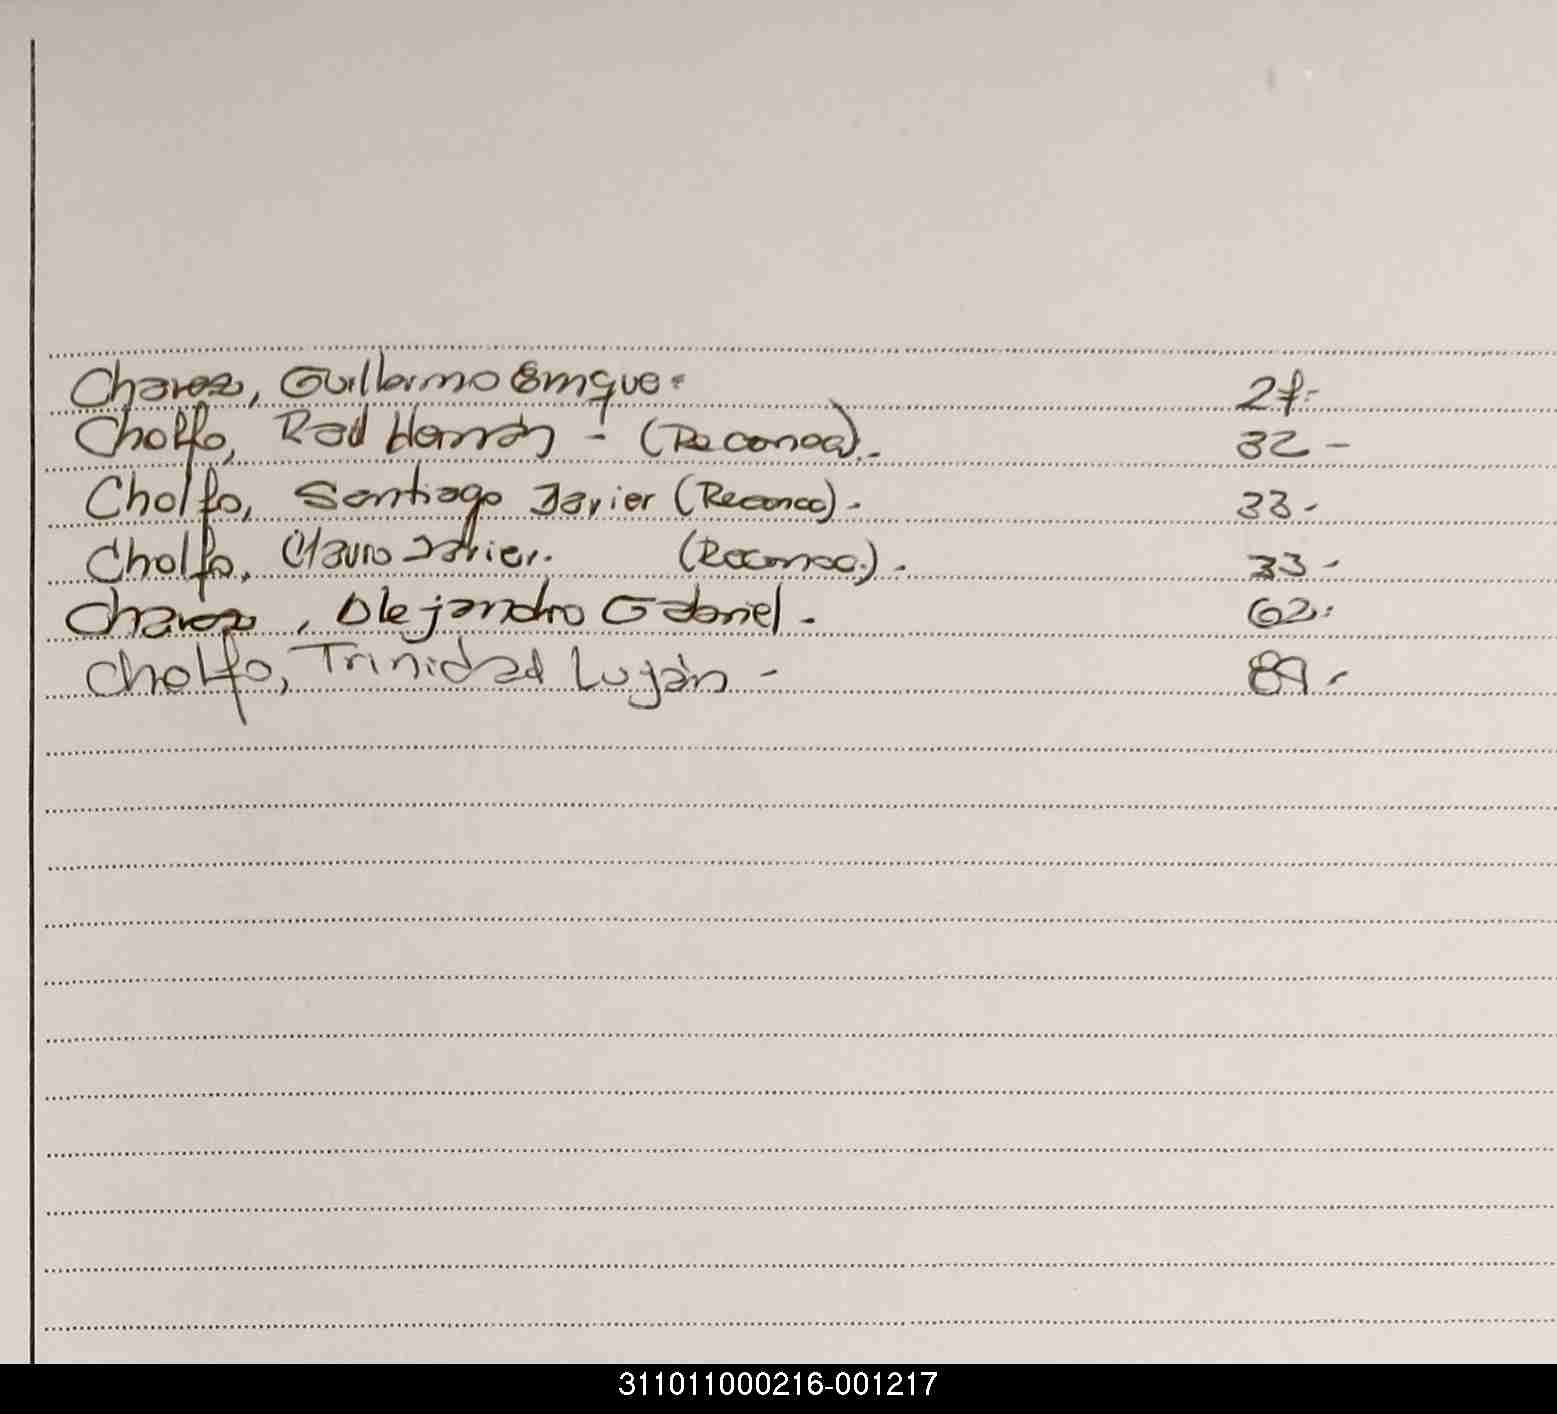 Chavez, Guillermo Enrique.
Cholfo, Raul Hernán - (Reconoc).
27.-
32 -
Cholfo, Santiago Javier (Reconoc).-
33.-
Cholfo, Mauro Javier. (Reconoc.).
33.-
Chavez, Alejandro Gabriel.-
62.-
Cholfo, Trinidad Luján -
89.-
311011000216-001217